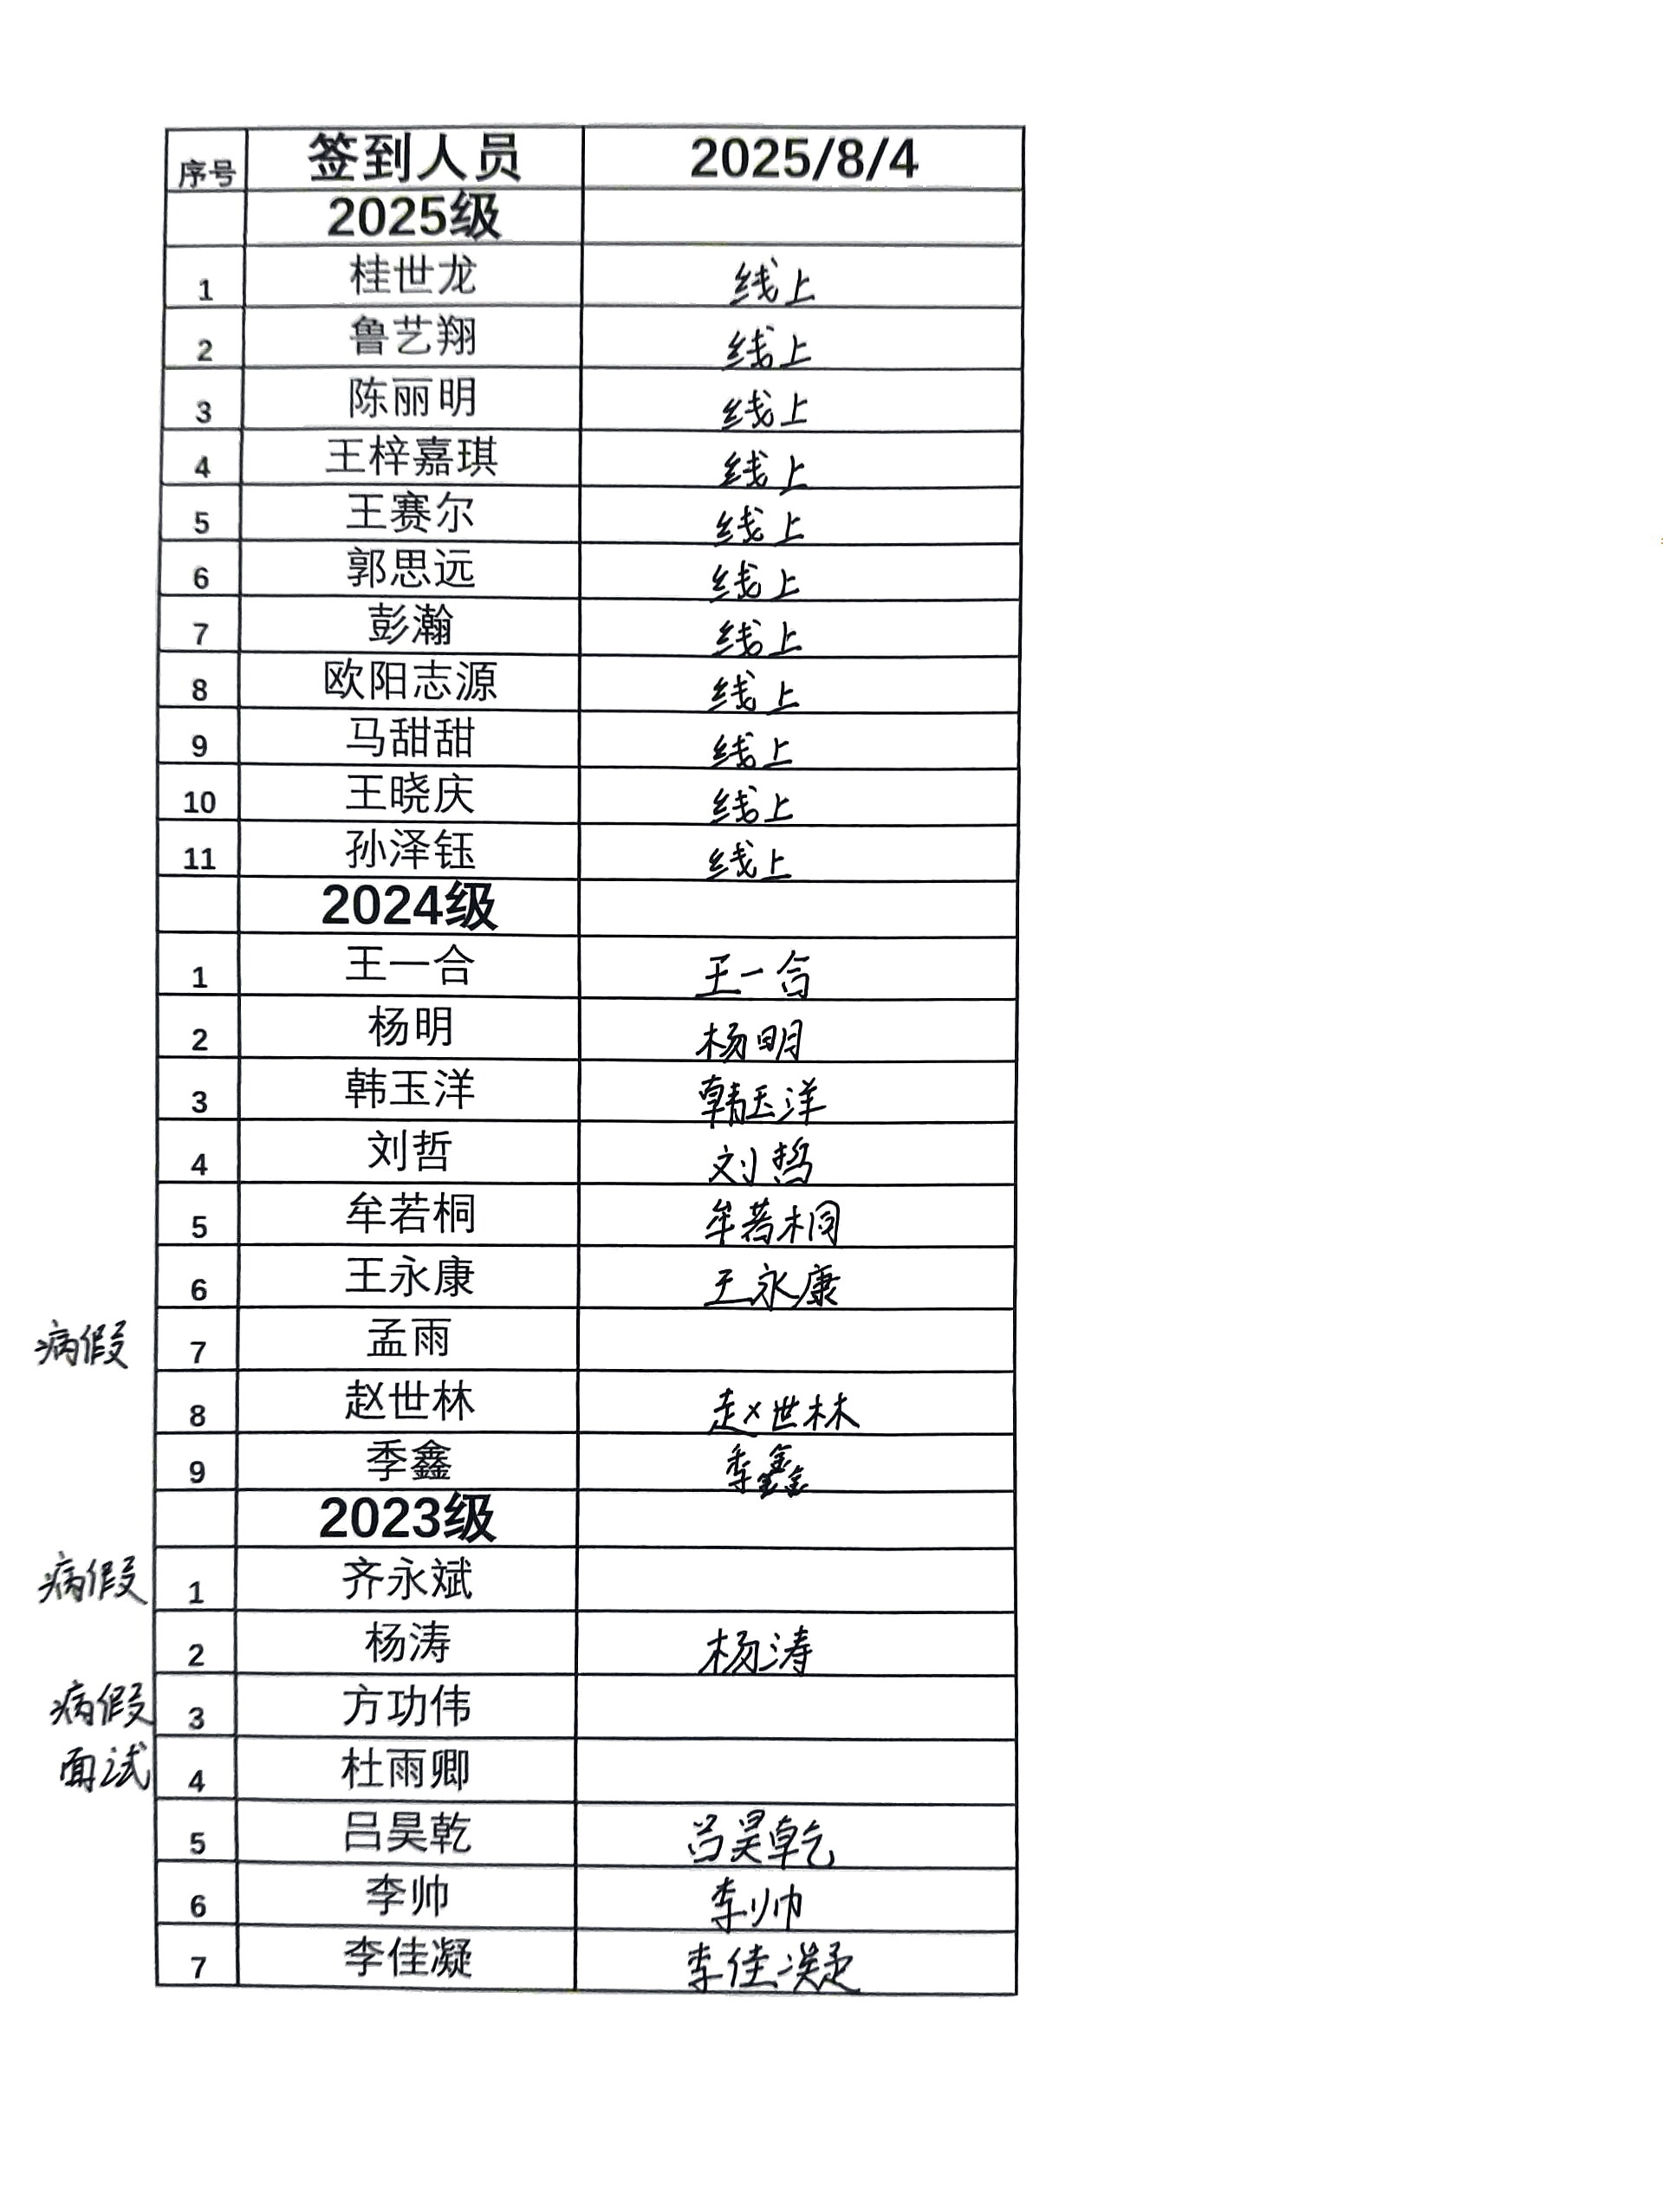 序号 签到人员 2025/8/4
2025级
1 桂世龙 线上
2 鲁艺翔 线上
3 陈丽明 线上
4 王梓嘉琪 线上
5 王赛尔 线上
6 郭思远 线上
7 彭瀚 线上
8 欧阳志源 线上
9 马甜甜 线上
10 王晓庆 线上
11 孙泽钰 线上
2024级
1 王一合 王一合
2 杨明 杨明
3 韩玉洋 韩玉洋
4 刘哲 刘哲
5 牟若桐 牟若桐
6 王永康 王永康
病假 7 孟雨
8 赵世林 赵世林
9 季鑫 季鑫
2023级
病假 1 齐永斌
2 杨涛 杨涛
病假 3 方功伟
面试 4 杜雨卿
5 吕昊乾 吕昊乾
6 李帅 李帅
7 李佳凝 李佳凝